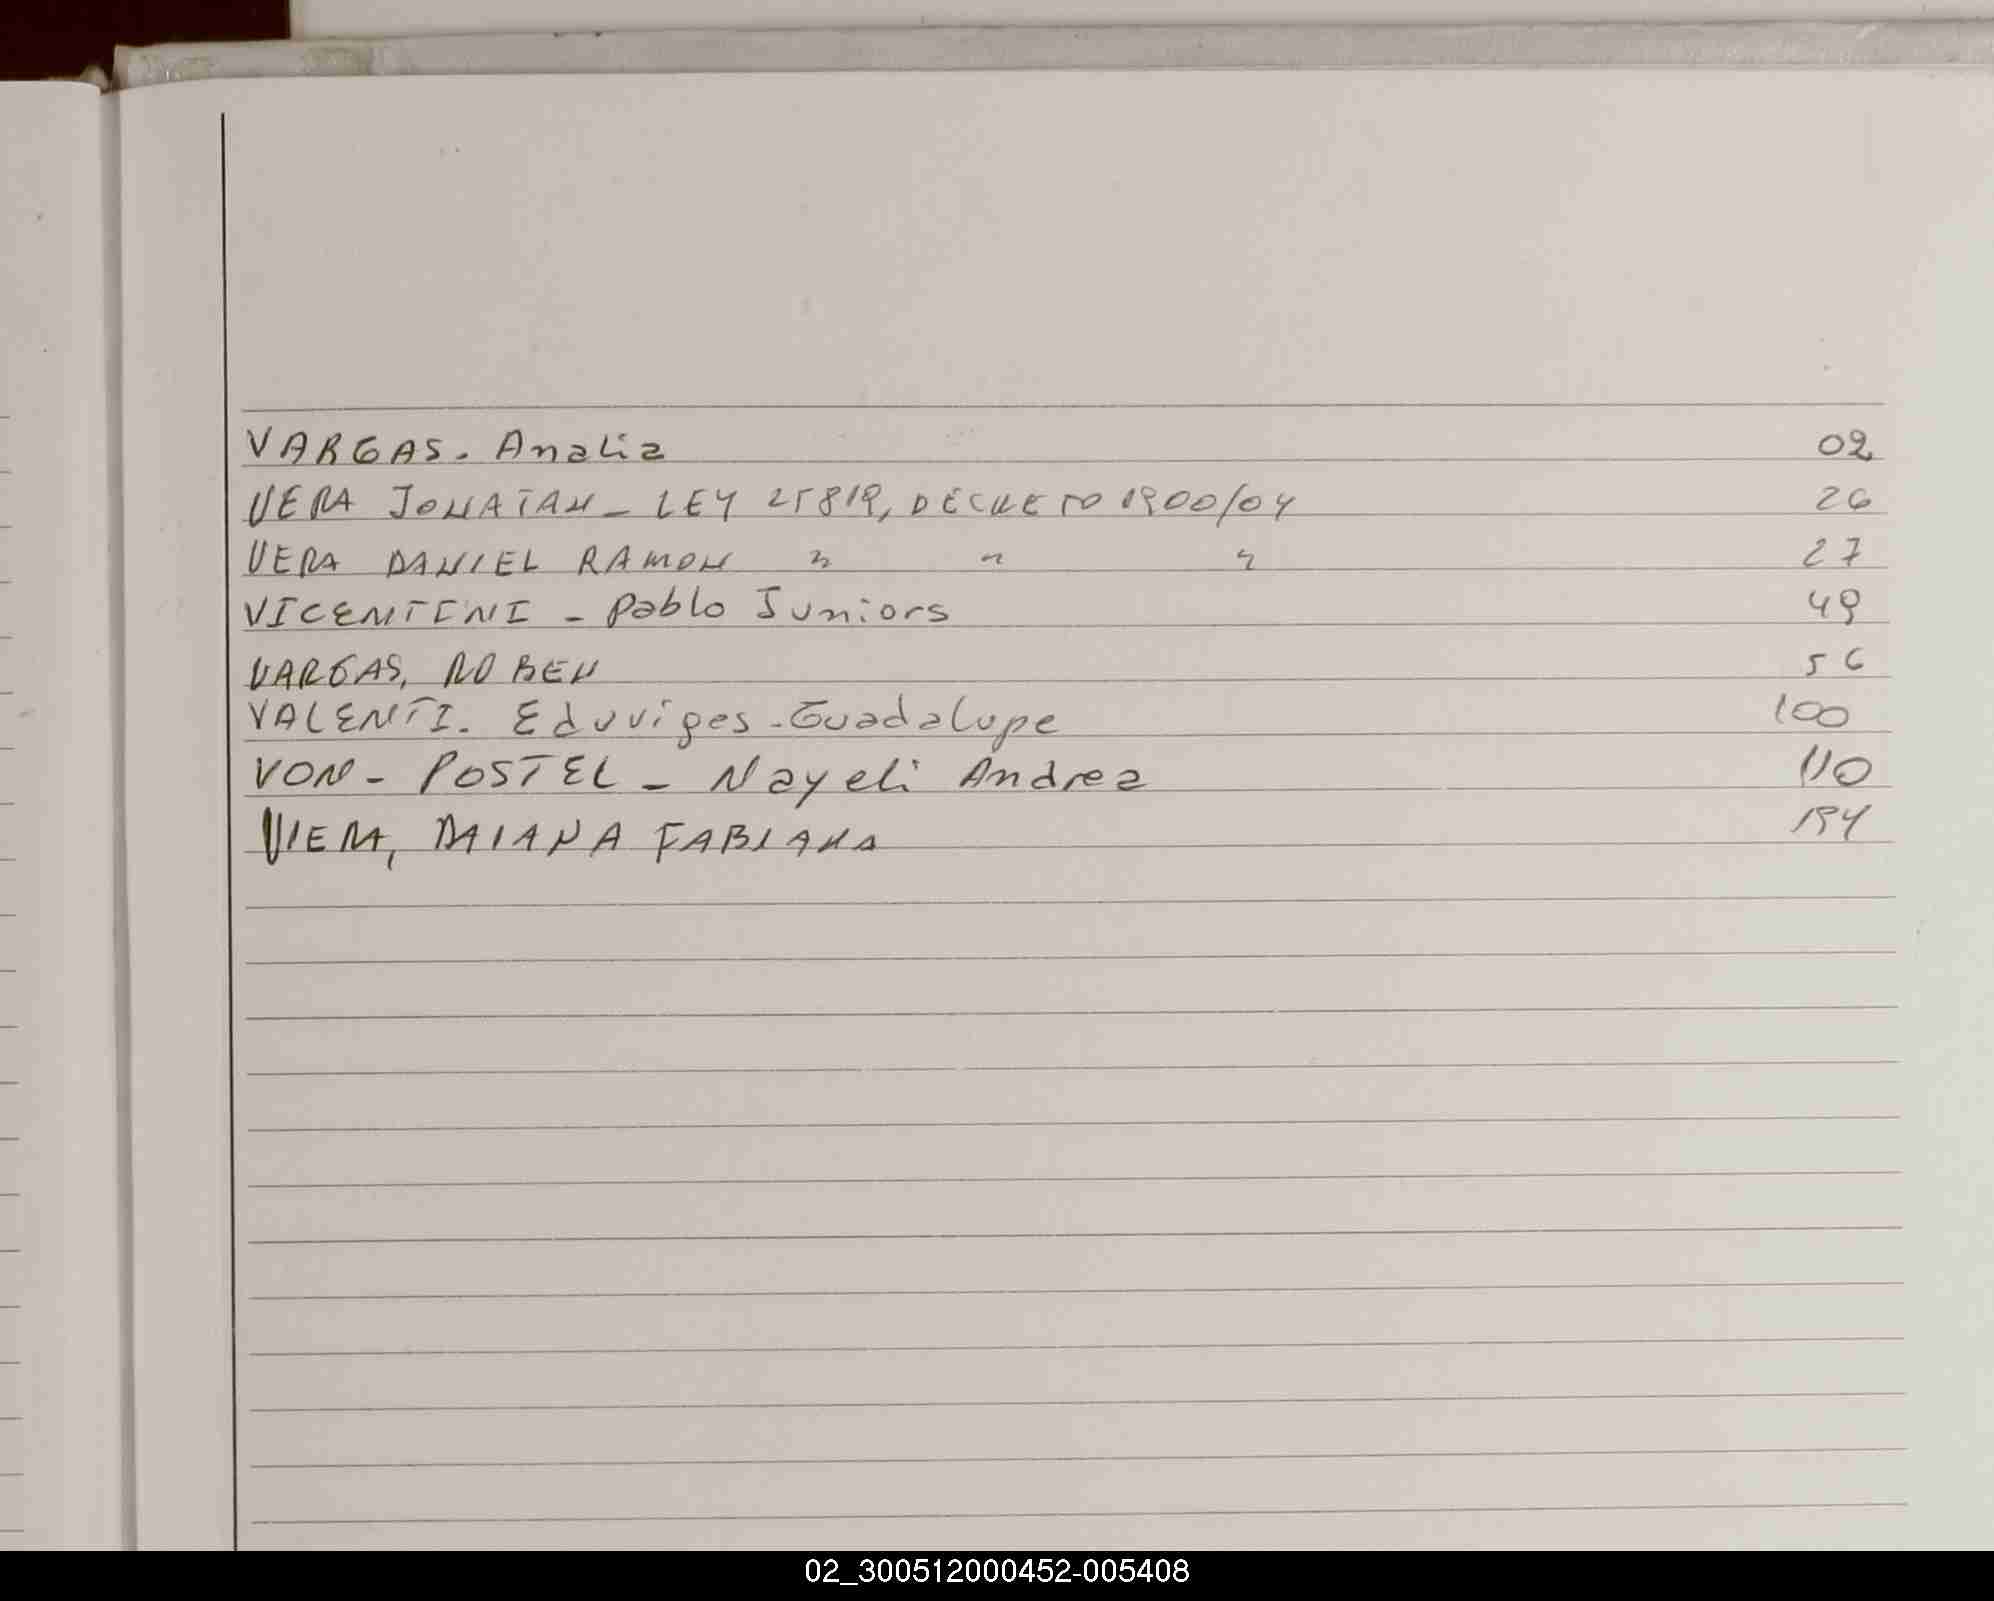 VARGAS. Analia 02
VERA JONATAN - LEY 25819, DECRETO 1900/04 26
VERA DANIEL RAMON " " " 27
VICENTINI - Pablo Juniors 49
VARGAS, RUBEN 56
VALENTI. Eduviges - Guadalupe 100
VON - POSTEL - Nayeli Andrea 110
VIERA, DAIANA FABIANA 194
02_300512000452-005408